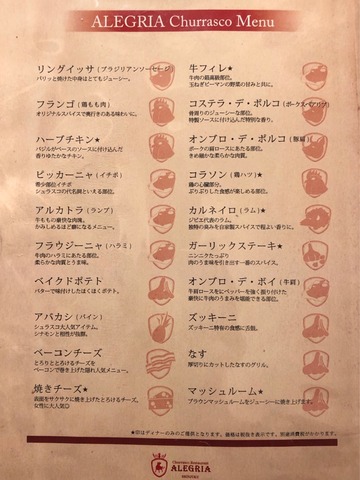 ALEGRIA Churrasco Menu
リングイッサ (ブラジリアンソーセージ)
パリッと焼けた中身はとてもジューシー。
フランゴ (鶏もも肉)
オリジナルスパイスで奥行きのある味わいに。
ハーブチキン★
バジルがベースのソースに付け込んだ
香りゆたかなチキン。
ピッカーニャ (イチボ)
希少部位イチボ
シュラスコの代名詞といえる部位。
アルカトラ (ランプ)
牛ももの最良的な肉塊。
かみしめるほど癖になるメニュー。
フラウジーニャ (ハラミ)
牛肉のハラミにあたる部位。
柔らかな肉質とうま味。
ベイクドポテト
バターで味付けしたほくほくポテト。
アバカシ (パイン)
シュラスコ大人気アイテム。
シナモンと相性が抜群。
ベーコンチーズ
とろりととろけるチーズを
ベーコンで巻き上げた隠れ人気メニュー。
焼きチーズ★
表面をサクサクに焼き上げたとろけるチーズ。
女性に大人気◎
牛フィレ★
牛肉の最高級部位。
玉ねぎピーマンの野菜の甘みと共に。
コステラ・デ・ポルコ (ポークスペアリブ)
骨周りのジューシーな部位。
特製ソースに付け込んだ特別な香り。
オンブロ・デ・ポルコ (豚肩)
ポークの肩ロースにあたる部位。
きめ細かな柔らかな肉質。
コラソン (鶏ハツ)★
鶏の心臓部分。
ぷりぷりした食感が楽しめる部位。
カルネイロ (ラム)★
ジビエ代表のラム。
独特の臭みを自家製スパイスで程よい香り。
ガーリックステーキ★
ニンニクたっぷり
肉のうま味を引き出す一番のスパイス。
オンブロ・デ・ボイ (牛肩)
牛肩ロースをにペッパーを強く振り付けた
豪快に牛肉のうまみを堪能できる部位。
ズッキーニ
ズッキーニ特有の食感に舌鼓。
なす
厚切りにカットしたなすのグリル。
マッシュルーム★
ブラウンマッシュルームをジューシーに焼き上げます。
★印はディナーのみのご提供となります。価格は税抜き表示です。別途消費税がかかります。
Churrasco Restaurant
ALEGRIA